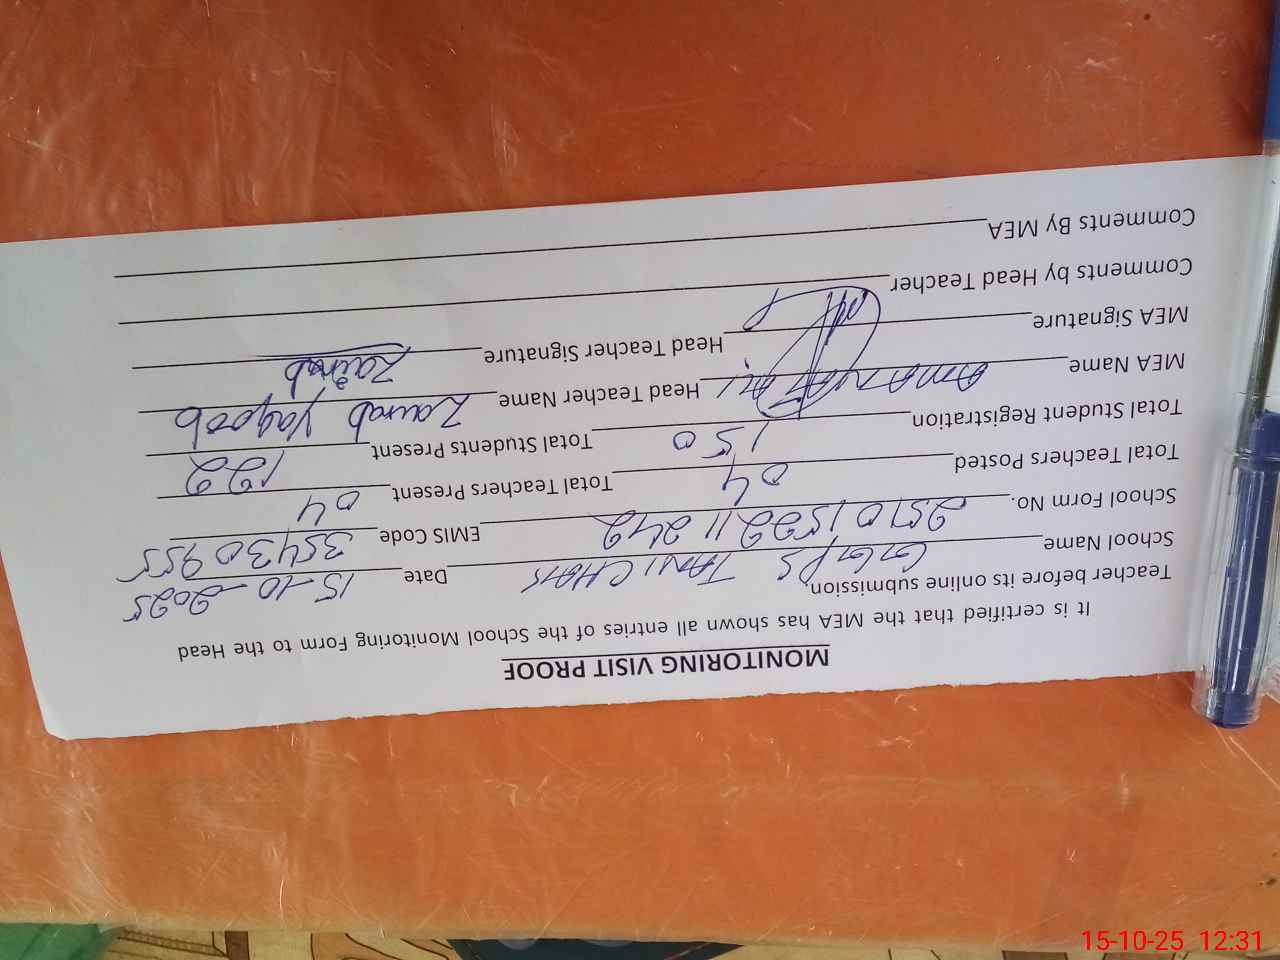 MONITORING VISIT PROOF
It is certified that the MEA has shown all entries of the School Monitoring Form to the Head
Teacher before its online submission.
School Name GGPS TANI CHAK Date 15-10-2025
School Form No. EMIS Code 35430955
Total Teachers Posted 04 Total Teachers Present 04
Total Student Registration 150 Total Students Present 122
MEA Name Head Teacher Name Zainab Yaqoob
MEA Signature Head Teacher Signature Zainab
Comments by Head Teacher
Comments By MEA
15-10-25 12:31